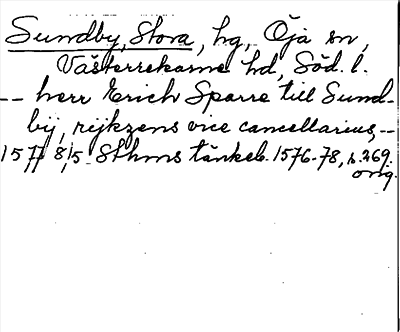 Sundby, Stora, hg, Öja sn,
Västerrekarne hd, Söd. l.
-- herr Erich Sparre till Sund-
bij, rijkzens vice cancellarius, --
1577 8/5 Sthms tänkeb. 1576-78, s. 269.
orig.